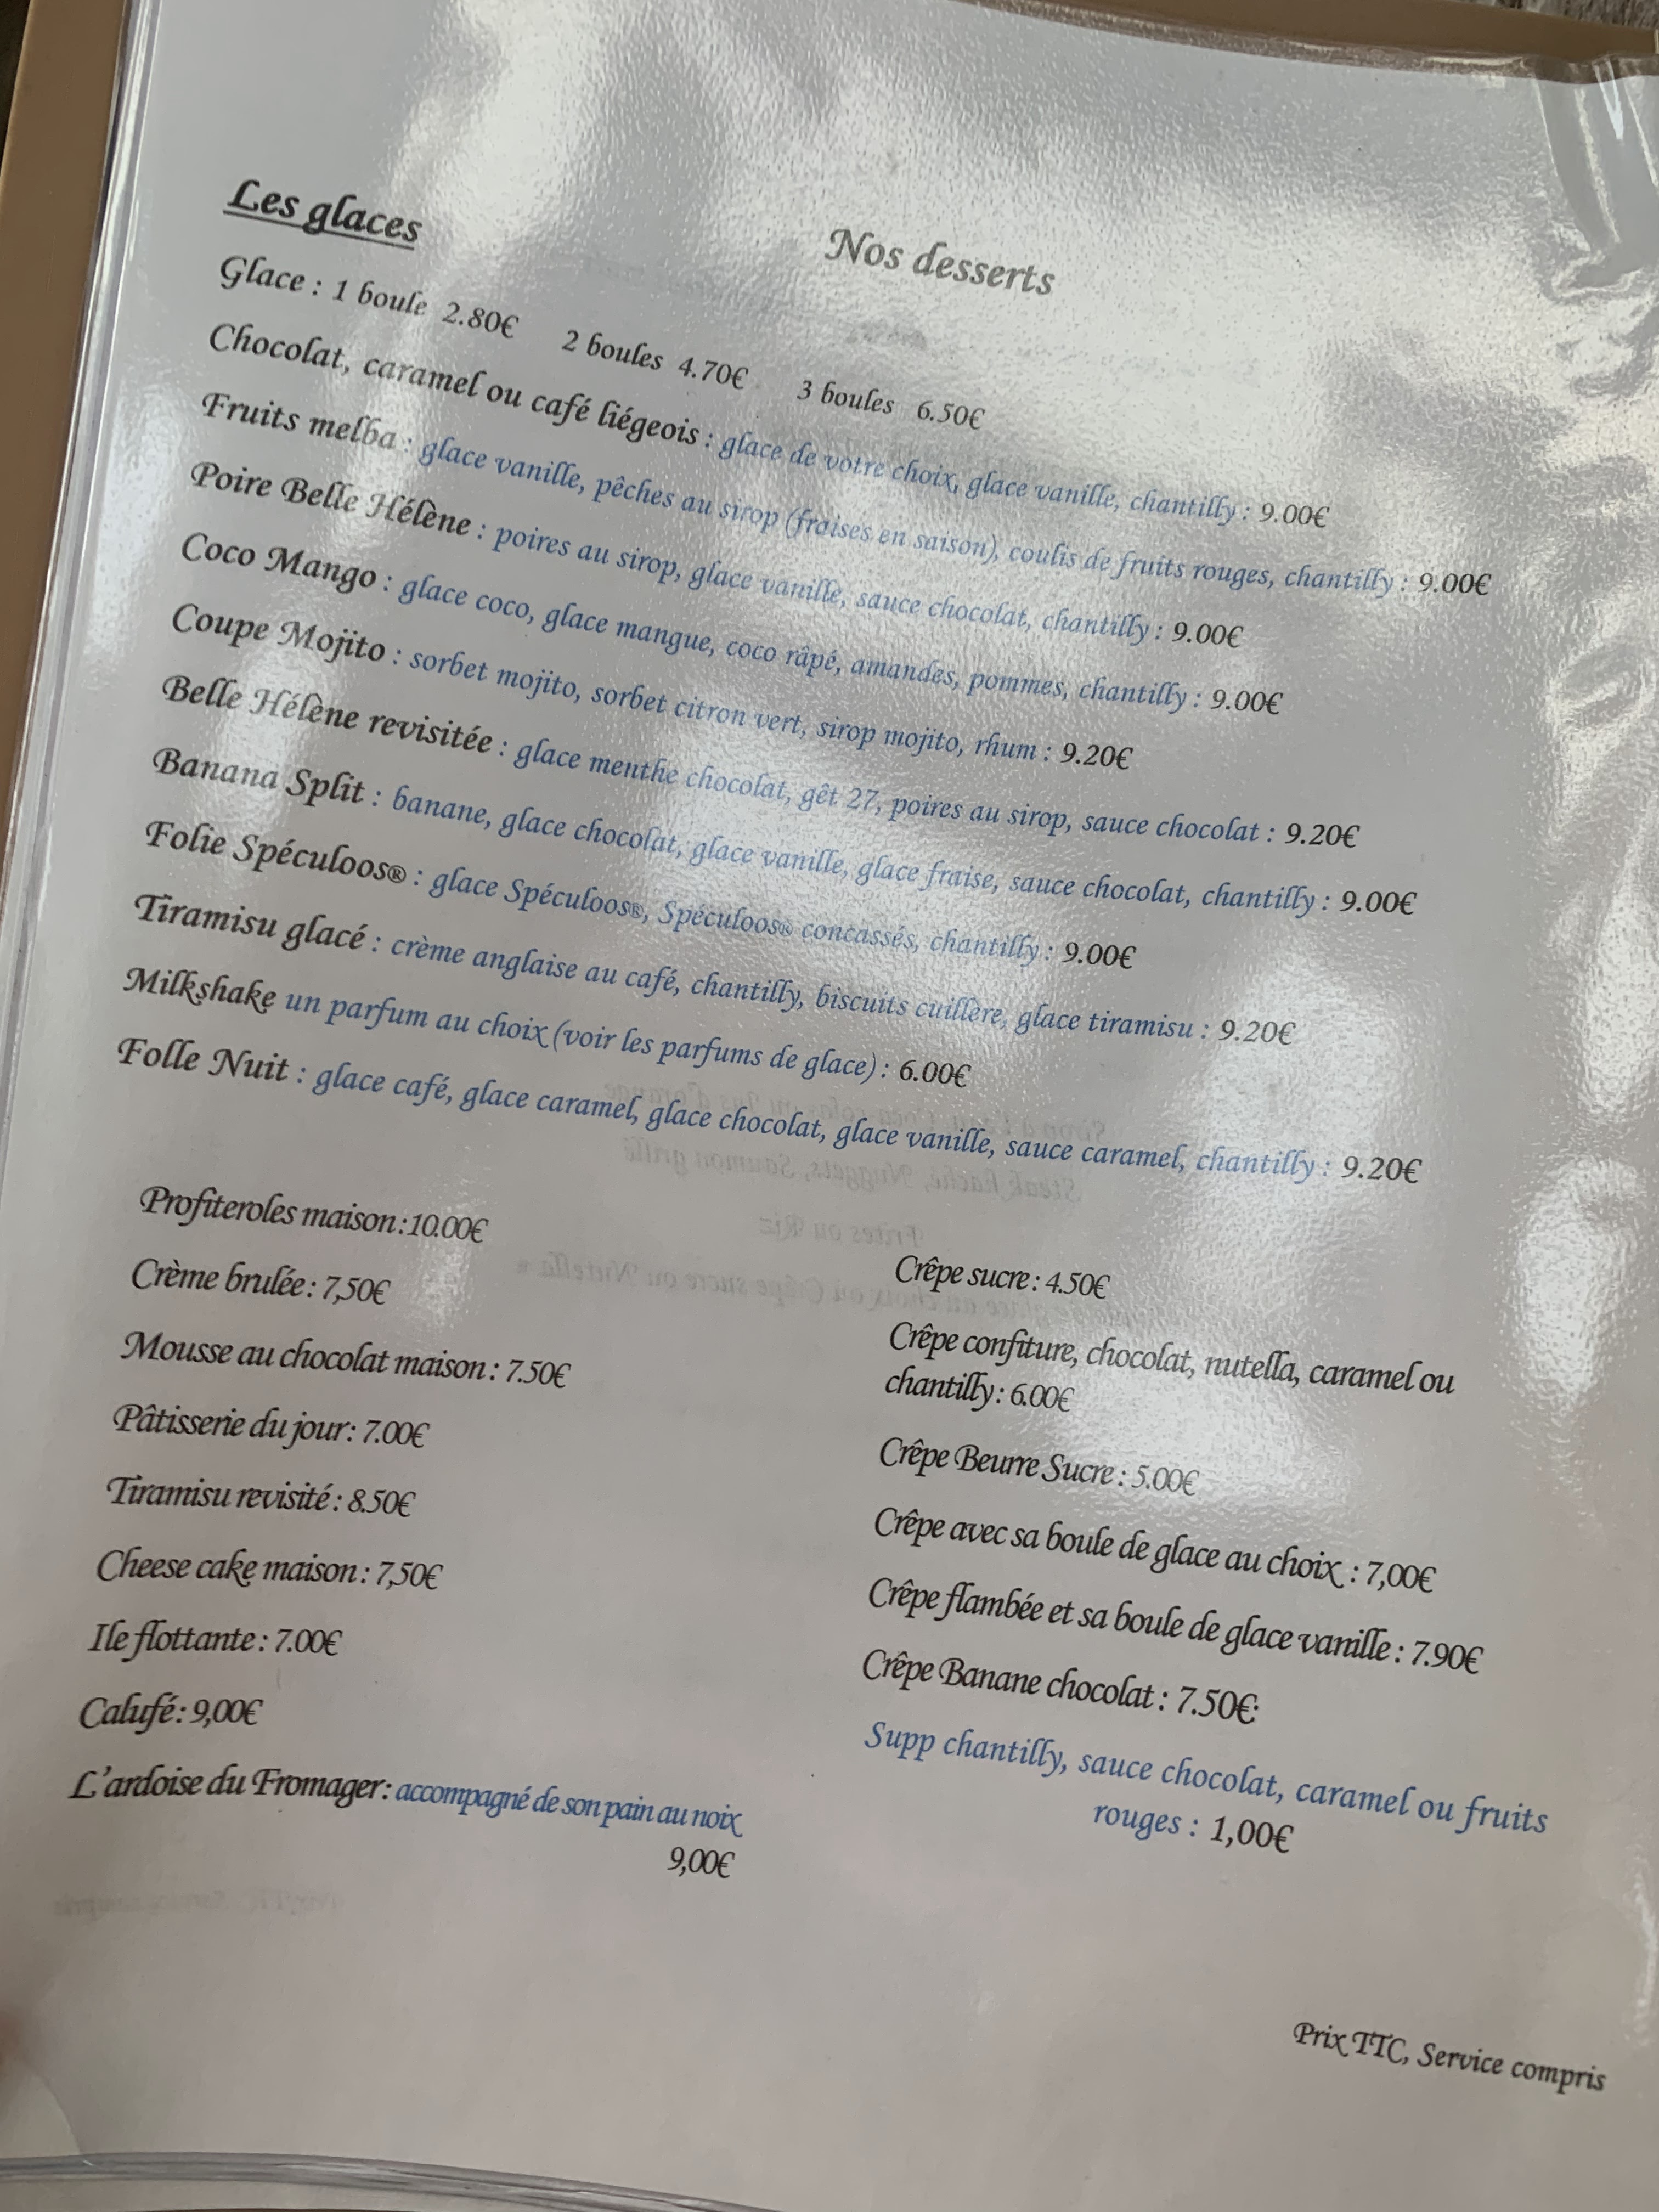 Nos desserts
Les glaces
Glace : 1 boule 2.80€ 2 boules 4.70€ 3 boules 6.50€
Chocolat, caramel ou café liégeois : glace de votre choix, glace vanille, chantilly : 9.00€
Fruits melba : glace vanille, pêches au sirop (fraises en saison), coulis de fruits rouges, chantilly : 9.00€
Poire Belle Hélène : poires au sirop, glace vanille, sauce chocolat, chantilly : 9.00€
Coco Mango : glace coco, glace mangue, coco râpé, amandes, pommes, chantilly : 9.00€
Coupe Mojito : sorbet mojito, sorbet citron vert, sirop mojito, rhum : 9.20€
Belle Hélène revisitée : glace menthe chocolat, gêt 27, poires au sirop, sauce chocolat : 9.20€
Banana Split : banane, glace chocolat, glace vanille, glace fraise, sauce chocolat, chantilly : 9.00€
Folie Spéculoos® : glace Spéculoos®, Spéculoos® concassés, chantilly : 9.00€
Tiramisu glacé : crème anglaise au café, chantilly, biscuits cuillère, glace tiramisu : 9.20€
Milkshake un parfum au choix (voir les parfums de glace) : 6.00€
Folle Nuit : glace café, glace caramel, glace chocolat, glace vanille, sauce caramel, chantilly : 9.20€
Profiteroles maison :10.00€
Crème brulée : 7,50€
Mousse au chocolat maison : 7.50€
Pâtisserie du jour : 7.00€
Tiramisu revisité : 8.50€
Cheese cake maison : 7,50€
Ile flottante : 7.00€
Calufé : 9,00€
L'ardoise du Fromager : accompagné de son pain au noix
9,00€
Crêpe sucre : 4.50€
Crêpe confiture, chocolat, nutella, caramel ou
chantilly : 6.00€
Crêpe Beurre Sucre : 5.00€
Crêpe avec sa boule de glace au choix : 7,00€
Crêpe flambée et sa boule de glace vanille : 7.90€
Crêpe Banane chocolat : 7.50€:
Supp chantilly, sauce chocolat, caramel ou fruits
rouges : 1,00€
Prix TTC, Service compris